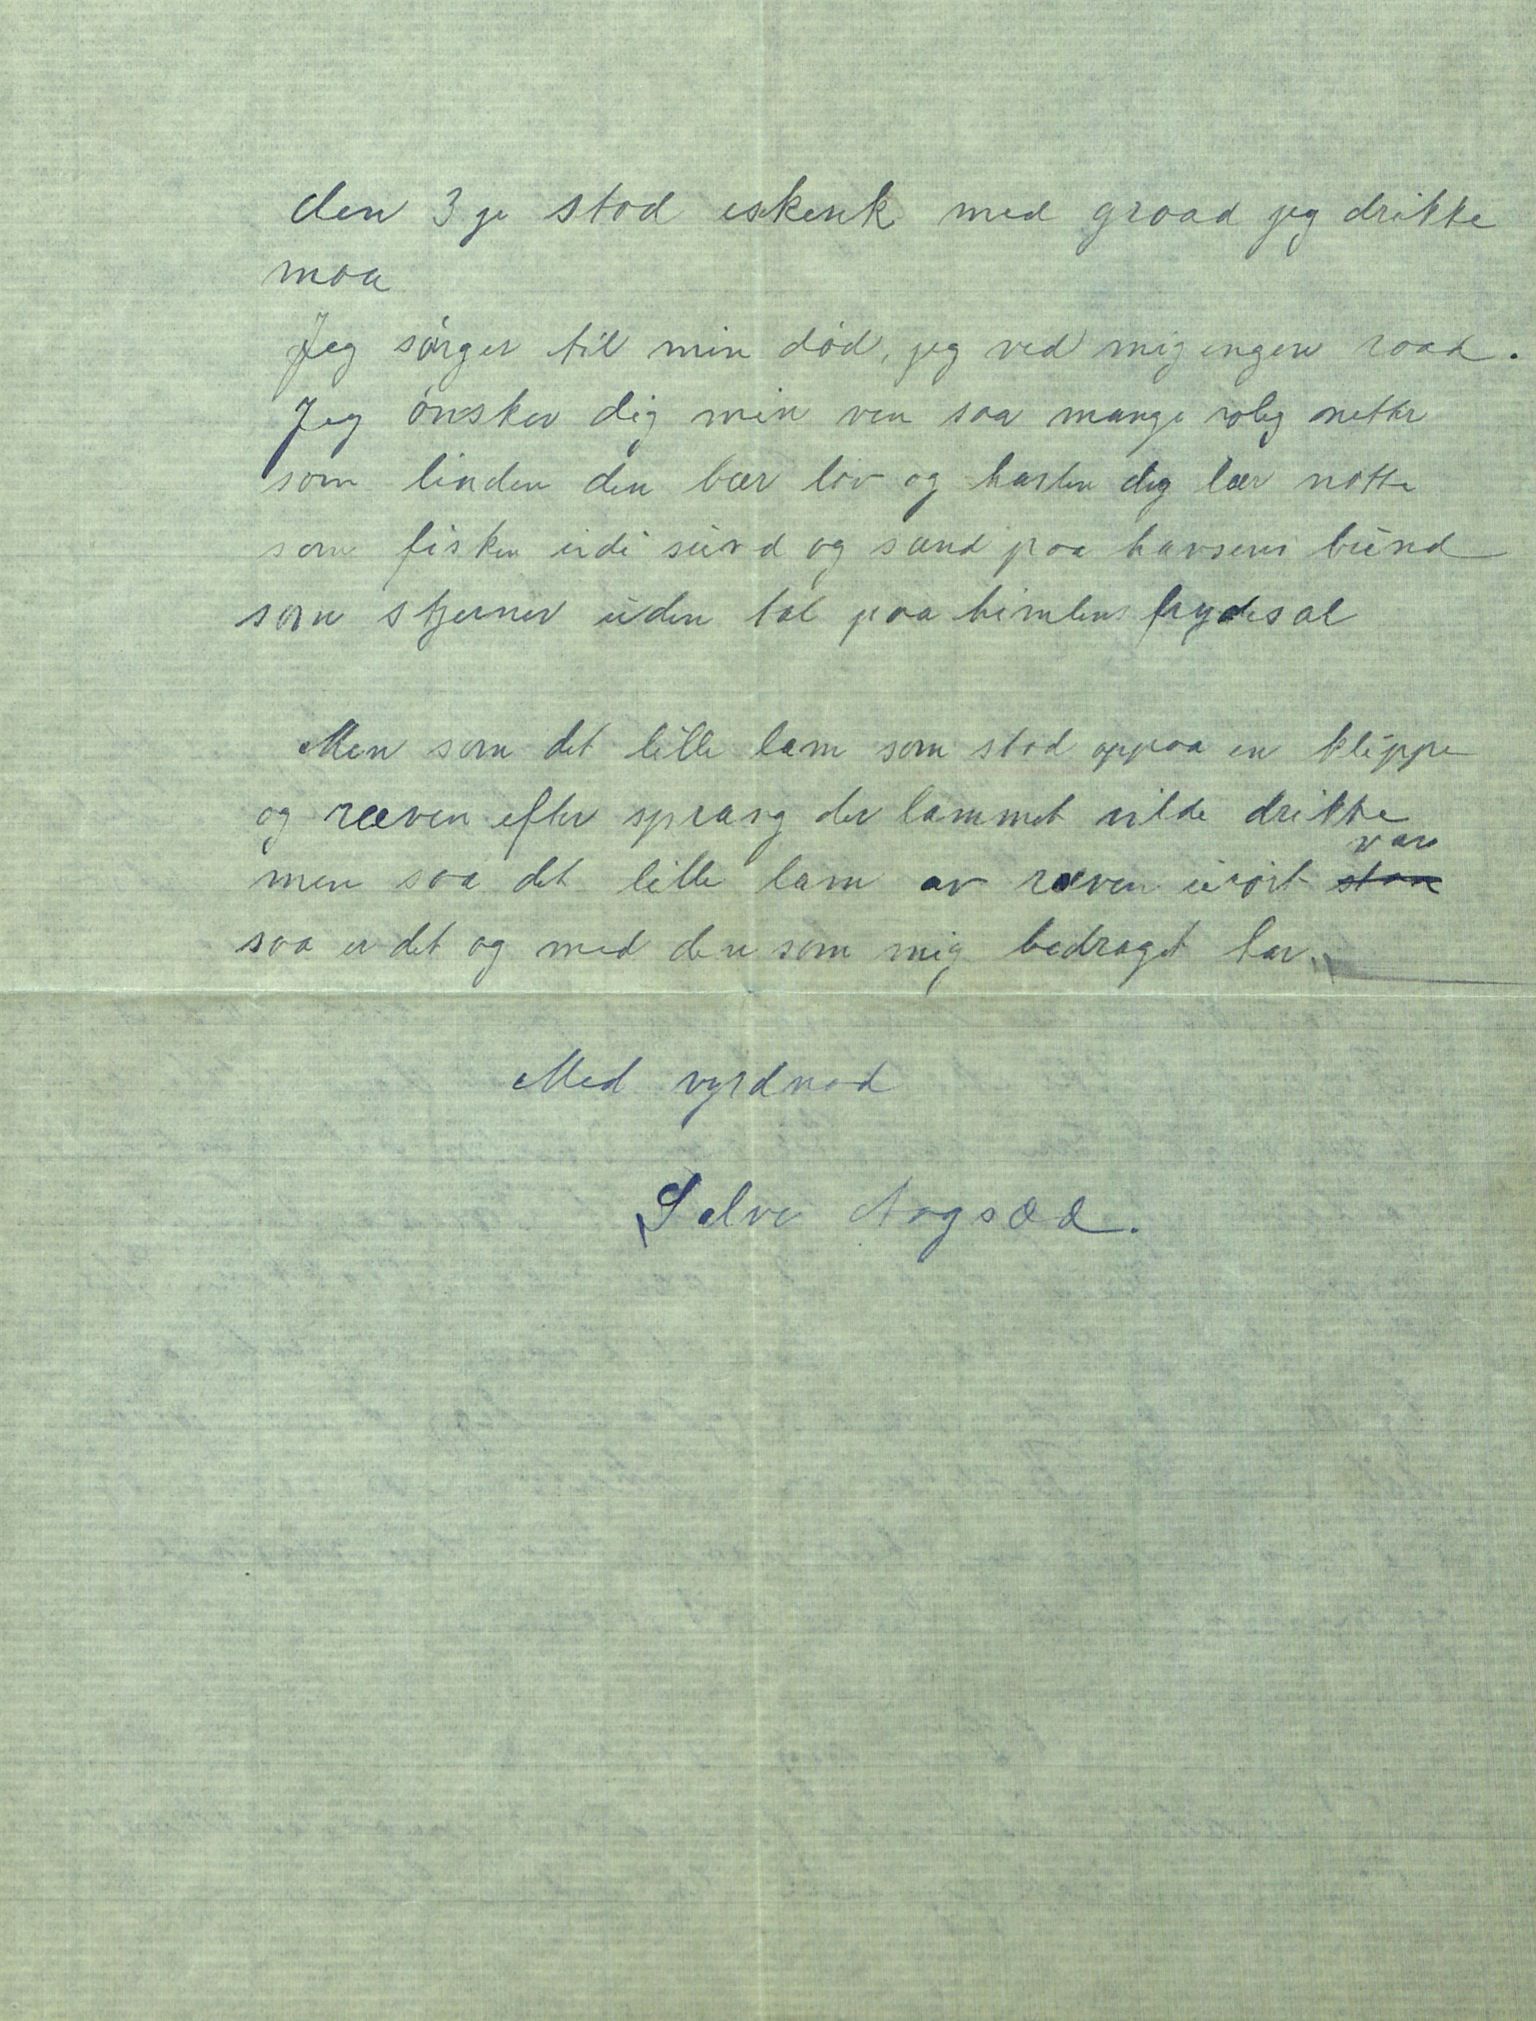 den 3 je stod iskenk med graad jeg drikke
maa
Jeg sørger til min død, jeg ved mig ingen raad.
Jeg ønsker dig min ven saa mange rolig netter
som linden den bær løv og haslen dig bær nøtter
som fisken udi sund og sand paa havsens bund
som stjerner uden tal paa himlens frydesal
Men som det lille lam som stod oppaa en klippe
og ræven efter sprang der lammet vilde drikke
men saa det lille lam av ræven urørt var
saa er det og med den som mig bedraget har.
Med vyrdnad
Salve Aogsæd.